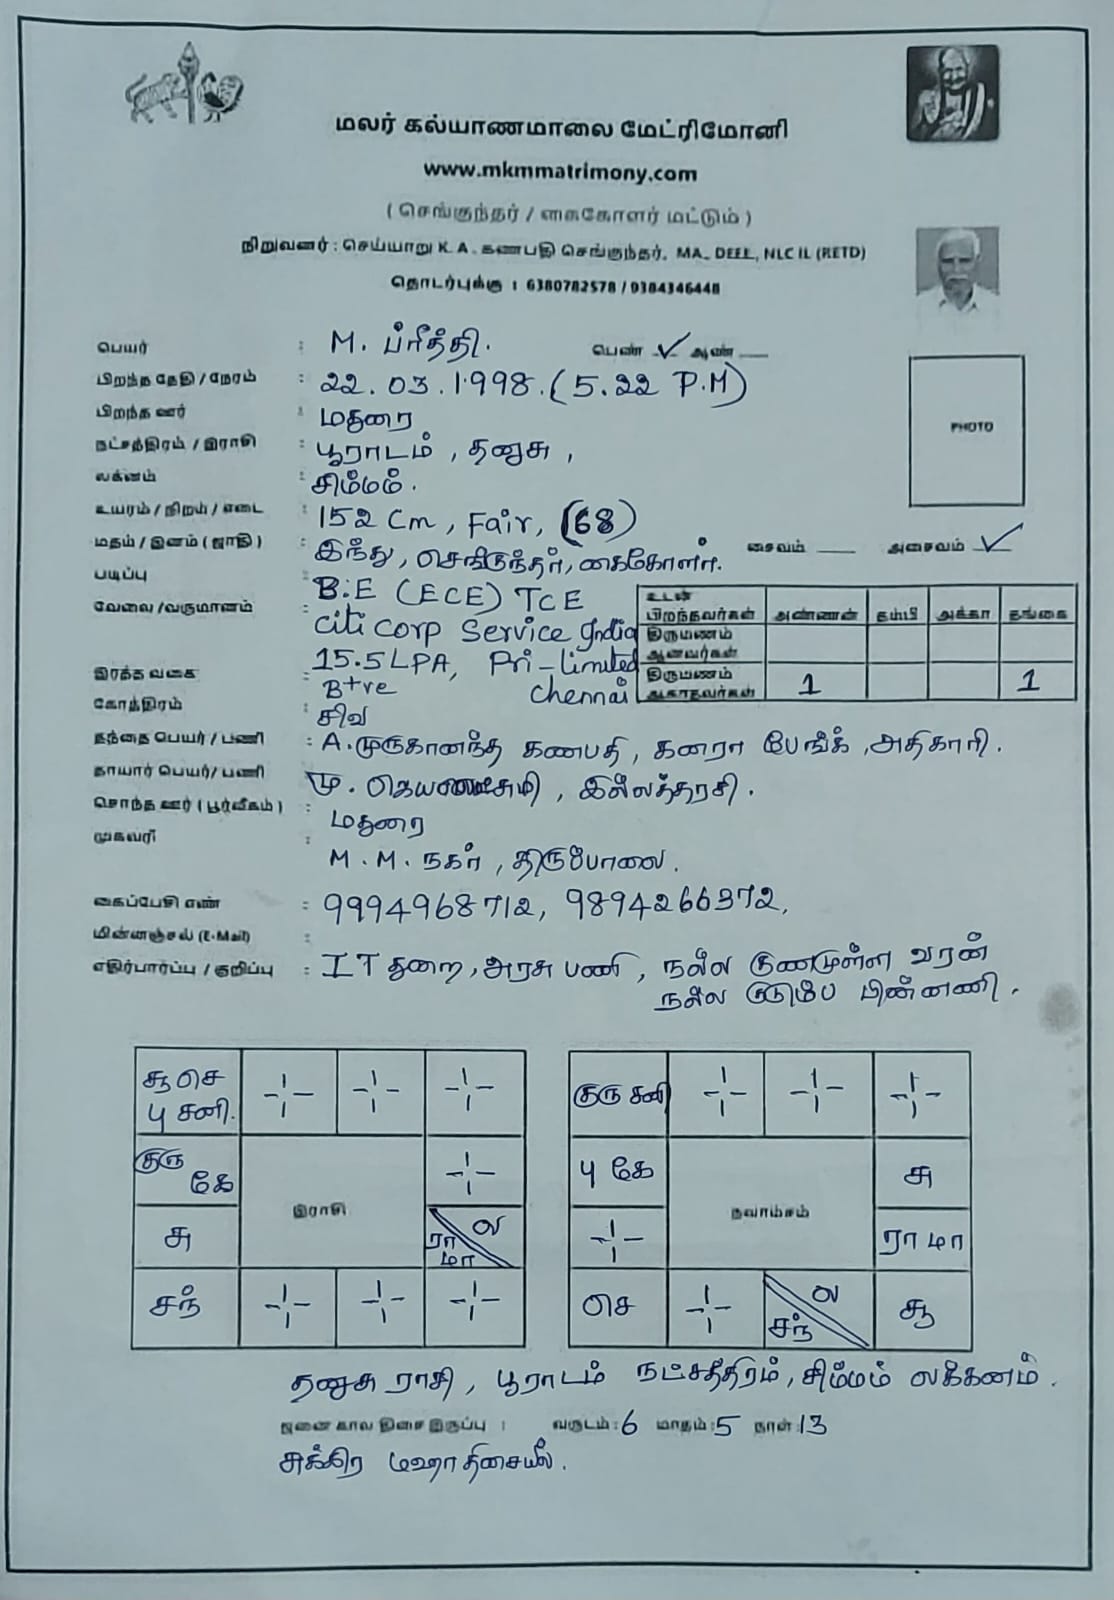 மலர் கல்யாணமாலை மேட்ரிமோனி
www.mkmmatrimony.com
( செங்குந்தர் / கைகோளர் மட்டும் )
நிறுவனர் : செய்யாறு K. A. கணபதி செங்குந்தர், MA., DEEE, NLC IL (RETD)
தொடர்புக்கு : 6380782578 / 9384346448
பெயர் : M. ப்ரீத்தி. பெண் ✓ ஆண்
பிறந்த தேதி / நேரம் : 22.03.1998. (5.22 P.M)
பிறந்த ஊர் : மதுரை
PHOTO
நட்சத்திரம் / இராசி : பூராடம் , தனுசு ,
லக்னம் : சிம்மம்.
உயரம் / நிறம் / எடை : 152 Cm , Fair, (68)
மதம் / இனம் ( ஜாதி ) : இந்து, செங்குந்தர், கைகோளர். சைவம் அசைவம் ✓
படிப்பு : B.E (ECE) TCE
வேலை /வருமானம் : Citi Corp Service India
15.5 LPA, Pri-limited
Chennai
உடன் பிறந்தவர்கள் அண்ணன் தம்பி அக்கா தங்கை
திருமணம் ஆனவர்கள்
திருமணம் ஆகாதவர்கள் 1 1
இரத்த வகை : B+ve
கோத்திரம் : சிவ
தந்தை பெயர் / பணி : A.முருகானந்த கணபதி , கனரா பேங்க் , அதிகாரி .
தாயார் பெயர்/ பணி : மு. , இல்லத்தரசி .
சொந்த ஊர் ( பூர்வீகம் ) : மதுரை
முகவரி : M. M. நகர் , திருப்பாலை .
கைப்பேசி எண் : 9994968712, 9894266372,
மின்னஞ்சல் (E-Mail) :
எதிர்பார்ப்பு / குறிப்பு : IT துறை, அரசு பணி , நல்ல குணமுள்ள வரன்
நல்ல குடும்ப பின்னணி .
சூ செ
பு சனி.
குரு
கே
சு
சந்
இராசி
ல
ரா
மா
குரு சனி
பு கே
செ
நவாம்சம்
சு
ரா மா
சூ
ல
சந்
தனுசு ராசி , பூராடம் நட்சத்திரம் , சிம்மம் லக்கனம் .
ஜனன கால திசை இருப்பு : வருடம் : 6 மாதம் : 5 நாள் : 13
சுக்கிர மஹா திசையில் .